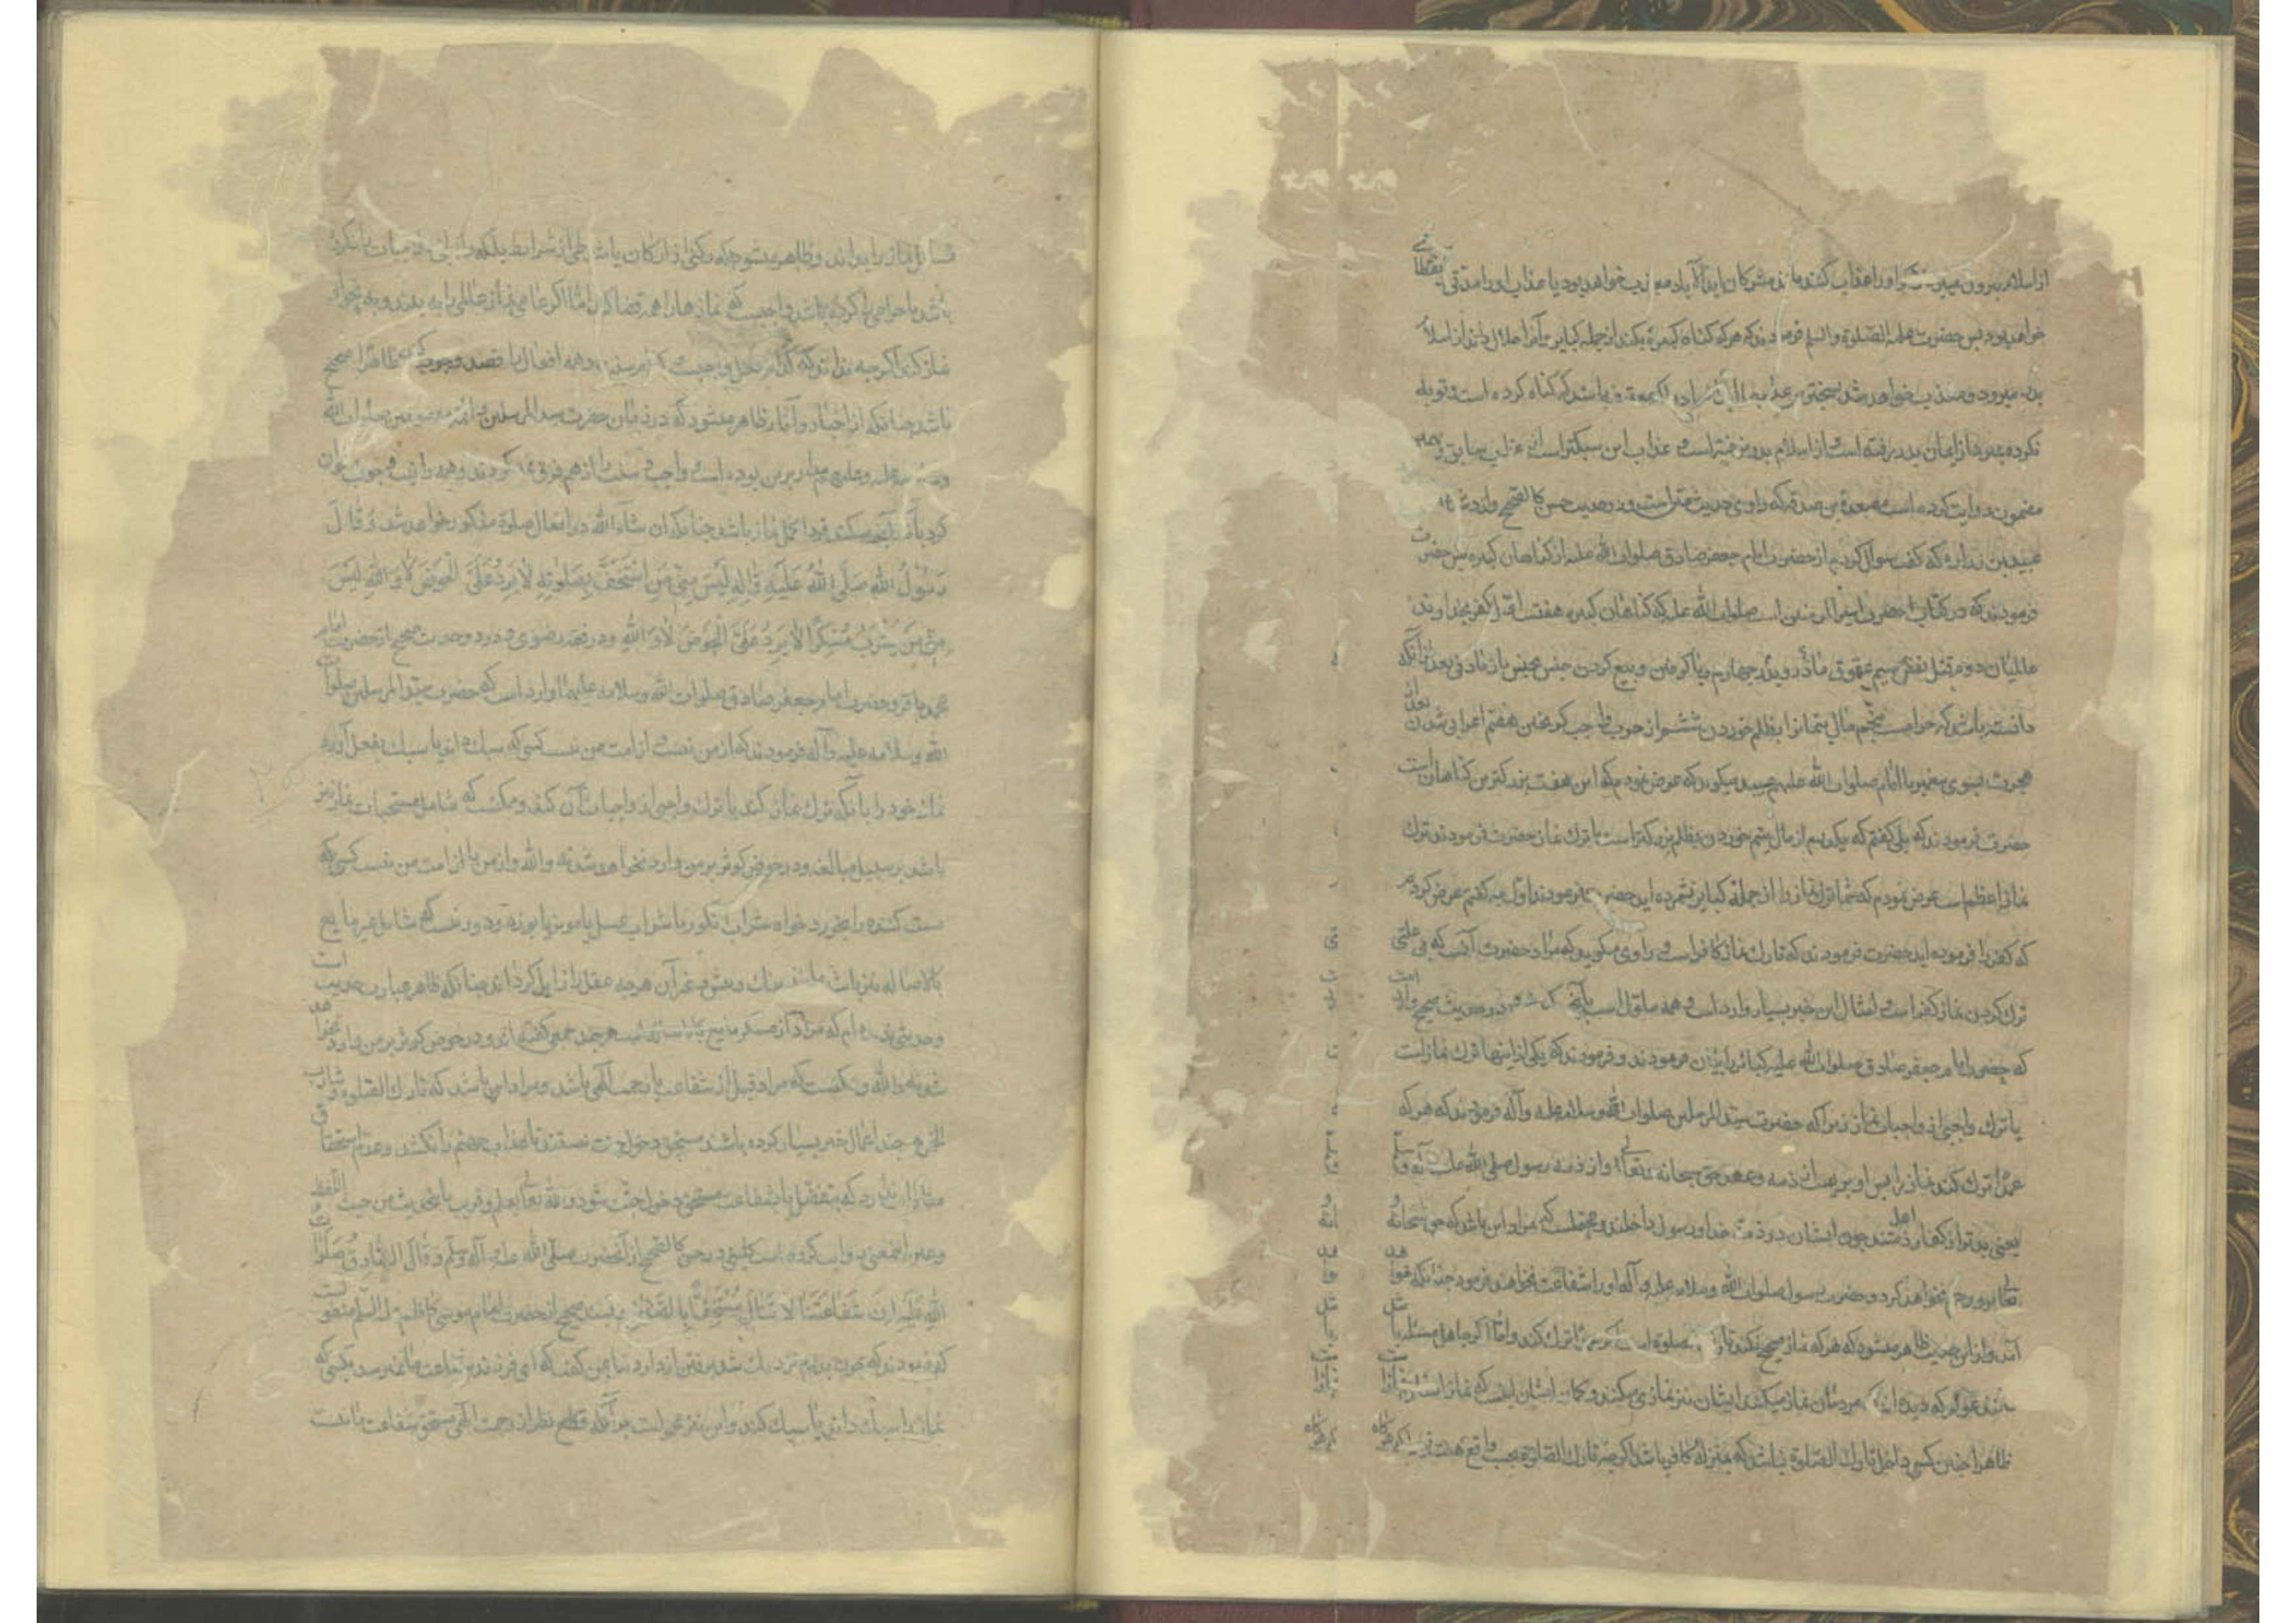 از اسلام بیرون میبرد و او را عذاب کنند مانند مشرکان ابد الآباد معذب خواهد بود یا عذاب او را مدتی
خواهد بود پس حضرت علیه الصلوة والسلم فرمودند که هر که کناه کبیره بکند از جمله کبایر و آنرا حلال داند از اسلام
بدر میرود و معذب خواهد شد بسختترین عذابها و اگر معترف باشد که کناه کرده است و توبه
نکرده بمیرد از ایمان بدر رفته است و از اسلام بدر نرفته است و عذاب این سبکتر است از عذاب سابق و
مضمون روایت کرده است مسعدة بن صدقه که راوی حدیث است و در حدیث حسن کالصحیح وارد
عبید بن زراره که کفت سوال کردم از حضرت امام جعفر صادق صلوات الله علیه از کناهان کبیره پس حضرت
فرمودند که در کتاب حضرت امیرالمؤمنین است صلوات الله علیه که کناهان کبیره هفتست اول کفر بخداوند
عالمیان دوم قتل نفس سیم عقوق مادر و پدر چهارم ربا کرفتن و بیع کردن جنس بجنس باز یادتی بعد از آنکه
دانسته باشد که حرامست پنجم مال یتیمانرا بظلم خوردن ششم از حرب واجب کریختن هفتم اعرابی شدن بعد از
هجرت بسوی پیغمبر یا امام صلوات الله علیهم عبید میکوید که عرض نمودم که این هفت بزرکترین کناهان است
حضرت فرمودند که بلی کفتم که یکدرهم از مال یتیم خوردن بظلم بزرکتر است یا ترک نماز حضرت فرمودند ترک
نماز اعظم است عرض نمودم که شما ترک نماز را از جمله کبایر نشمرده اید حضرت فرمودند اول چه کفتم عرض کردم
که کفر را فرموده اید حضرت فرمودند که تارک نماز کافر است و راوی میکوید که مراد حضرت آنست که بی علتی
ترک کردن نماز کفر است و امثال این خبر بسیار وارد است و همه ماول است بآنچه گذشت و در حدیث صحیح وارد است
که حضرت امام جعفر صادق صلوات الله علیه کبائر را بیان فرمودند و فرمودند که یکی از اینها ترک نماز است
یا ترک واجبی از واجبات نماز زیرا که حضرت سید المرسلین صلوات الله وسلامه علیه وآله فرمودند که هر که
عمدا ترک کند نماز را پس او بریست از ذمه و عهد حق سبحانه وتعالی و از ذمه رسول صلی الله علیه وآله وسلم
یعنی بدتر از کفار اهل ذمتند چون ایشان در ذمت خدا و رسول داخلند و محتملست که مراد این باشد که حق سبحانه
وتعالی برو رحم نخواهد کرد و حضرت رسول صلوات الله وسلامه علیه وآله او را شفاعت نخواهند فرمود چنانکه خواهد
آمد و از این حدیث ظاهر میشود که هر که نماز صحیح نکند تارک صلوة است که عمدا ترک کند و اما اکر جاهل مسئله باشد
مانند عوام که دیده اند که مردمان نماز میکنند ایشان نیز نمازی میکنند و کمان ایشان اینست که نماز است
ظاهرا چنین کسی داخل تارک الصلوة نباشد که بمنزله کافر باشد اکر چه تارک الصلوة بحسب واقع هست
نماز را بداند و ظاهر میشود که رکنی از ارکان یا شرطی از شرایط بلکه واجبی از واجبات را نکرده
باشد یا حرامی را کرده باشد واجبست که نمازها را همه قضا کند اما اکر عامی نماز عالمی را به بیند و به نحو او
نماز کند اکر چه نداند که کدام فعل واجبست و همه افعال با قصد وجوب کند ظاهرا صحیح
باشد چنانکه از اخبار و آثار ظاهر میشود که در زمان حضرت سید المرسلین و ائمه معصومین صلوات الله
وسلامه علیه وعلیهم مدار برین بوده است و واجب و سنت را از هم فرق نمی کردند و همه را نیت وجوب
کرد با آنچه سنت فرد اکمل نماز باشد چنانکه ان شاء الله در افعال صلوة مذکور خواهد شد وقال
رسول الله صلی الله علیه واله لیس منی من استخف بصلوته لا یرد علی الحوض لا والله لیس
منی من یشرب مسکرا لا یرد علی الحوض لا والله و در فقه رضوی و در دو حدیث صحیح از حضرت امام
محمد باقر و حضرت امام جعفر صادق صلوات الله وسلامه علیهما وارد است که حضرت سید المرسلین صلوات
الله وسلامه علیه وآله فرمودند که از من نیست و از امت من نیست کسی که سبک داند یا سبک بفعل آورد
نماز خود را با آنکه ترک نماز کند یا ترک واجبی از واجبات آن کند و ممکنست که شامل مستحبات نماز نیز
باشد بر سبیل مبالغه و در حوض کوثر بر من وارد نخواهد شد نه والله و از من یا از امت من نیست کسی که
مست کننده را بخورد خواه شراب انکور یا شراب عسل یا مویز یا بوزه و دور نیست که شامل غیر مایع
بالاصاله نیز باشد مانند بنک و غیر آن هر چه عقل را زایل کرداند چنانکه ظاهر عبارت حدیث است
وحدیثی ندیده ام که مراد از مسکر مایع باشد هر چند جمعی کفته اند و در حوض کوثر بر من وارد نخواهد
شد نه والله و ممکنست که مراد قبل از شفاعت یا رحمت الهی باشد و مراد این باشد که تارک الصلوة و شارب
الخمر هر چند اعمال خیر بسیار کرده باشند مستحق دخول جنت نیستند تا عذاب جهنم را نکشند و عدم استحقاق
منافات ندارد که بتفضل یا بشفاعت مستحق دخول جنت شود والله تعالی یعلم و قریب باین حدیث من حیث اللفظ
و عین المعنی روایت کرده است کلینی در حسن کالصحیح از آنحضرت صلی الله علیه وآله وسلم وقال الصادق صلوات
الله علیه ان شفاعتنا لا تنال مستخفا بالصلوة بسند صحیح از حضرت امام موسی کاظم علیه السلم منقولست
که فرمودند که چون پدرم نزدیک شد برفتن از دار دنیا بمن کفت که ای فرزند شفاعت ما نمیرسد بکسی که
نماز را سبک داند یا سبک کند و این نیز محمولست بر آنکه قطع نظر از رحمت الهی مستحق شفاعت ما نیست